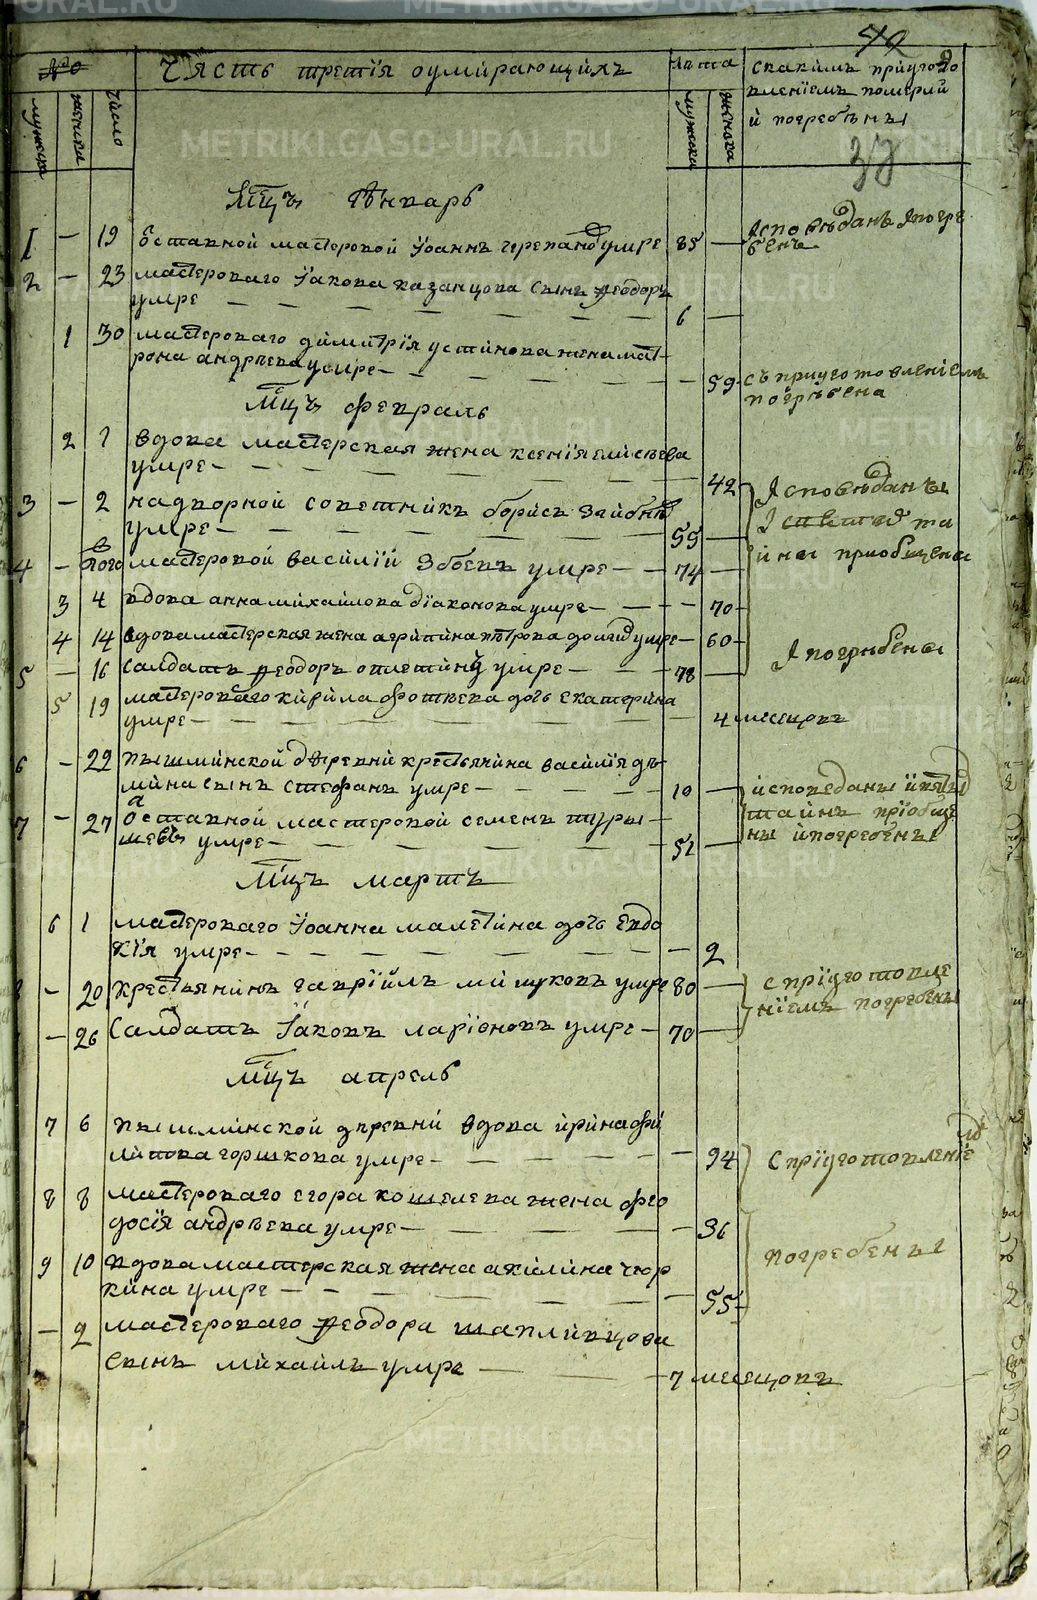 №
Часть третiя оумирающихъ
лѣта
скакимъ приуго
влениемъ померли
и погребены
мужеска
женска
число
мужска
женска
37
Мцъ Генварь
1 — 19 Ѿставной мастеровой Іоаннъ черепановъ умре 85 — Исповѣданъ Ипогре
бенъ
2 — 23 мастероваго Іакова казанцова сынъ Ѳеодоръ
умре — 6 —
1 30 мастероваго димитрïя устинова жена мат
рона андрѣева умре — 59 съ приуготовленiемъ
погрѣбена
Мцъ февраль
2 1 вдова мастерская жена ксенïя елисѣева
умре — 42
3 — 2 надворной советникъ борисъ
умре — 55 —
Исповѣданы
таинъ приобщены
4 — того мастеровой василïй Зобевъ умре — 74 —
3 4 вдова анна михайлова дïаконова умре — 70
4 14 вдова мастерская жена агрипина пѣтрова умре — 60
И погрѣбены
5 — 16 салдатъ Ѳеодоръ оплетинъ умре — 78 —
5 19 мастероваго кирила фотѣева дочь екатерина
умре — 4 месецовъ
6 — 22 пышминской деревни крестьянина василïя дъ
мина сынъ стефанъ умре — 10 —
исповеданы
таинъ прïобще
ны ипогребены
7 — 27 Ѿставной мастеровой семенъ туры
шевъ умре — 51 —
Мцъ мартъ
6 1 мастероваго Іоанна малетина дочь Евдо
кïя умре — 2
— 20 крестьянинъ гаврïилъ мишуковъ умре 80 —
с прïуготовле
нïемъ погребены
— 26 Салдатъ Іаковъ ларïоновъ умре — 70 —
Мцъ апрель
7 6 пышминской деревни вдова ирина фи
липова горшкова умре — 94
с прïуготовленïе
8 8 мастероваго егора кошелева жена фео
досïя андрѣева умре — 36
погребены
9 10 вдова мастерская жена акилина чюр
кина умре — 55
— 2 мастероваго Ѳеодора шапливцова
сынъ михаилъ умре — 7 месецовъ
METRIKI.GASO-URAL.RU